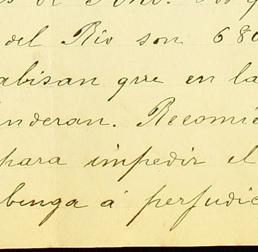 del Río son 680
abisan que en la
nderan. Recomie
para impedir el
benga á perjudic